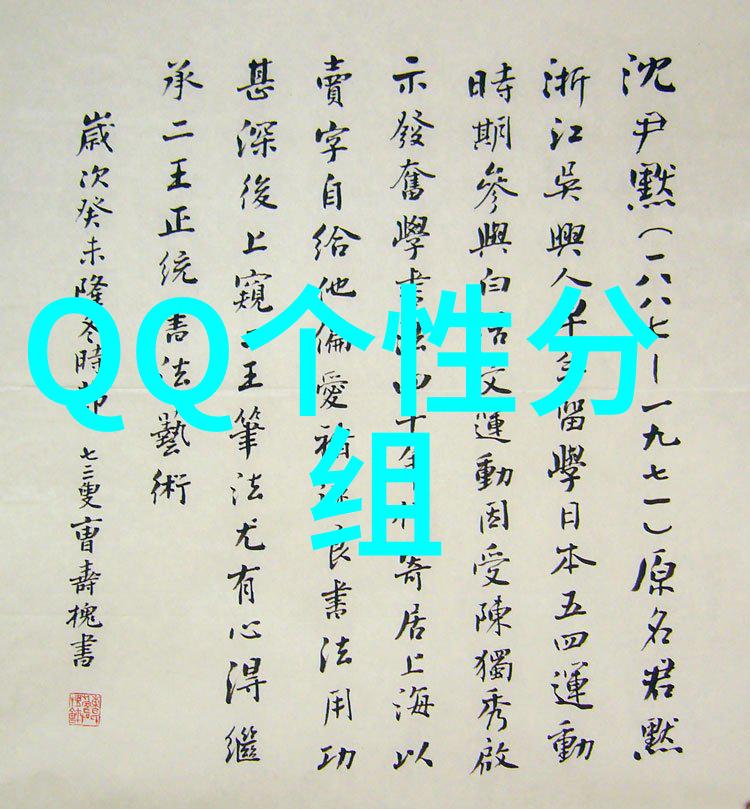 沈尹默(一八八七—一九七一)原名君默
浙江吳興人年留學日本五四運動
時期參與白話文運動因受陳獨秀啟
示發奮學書法四十年寄居上海以
賣字自給他偏愛褚遂良書法用功
甚深後上窺二王筆法尤有心得繼
承二王正统書法藝術
歲次癸未隆冬時節 七三叟曹壽槐書
QQ个性分
组